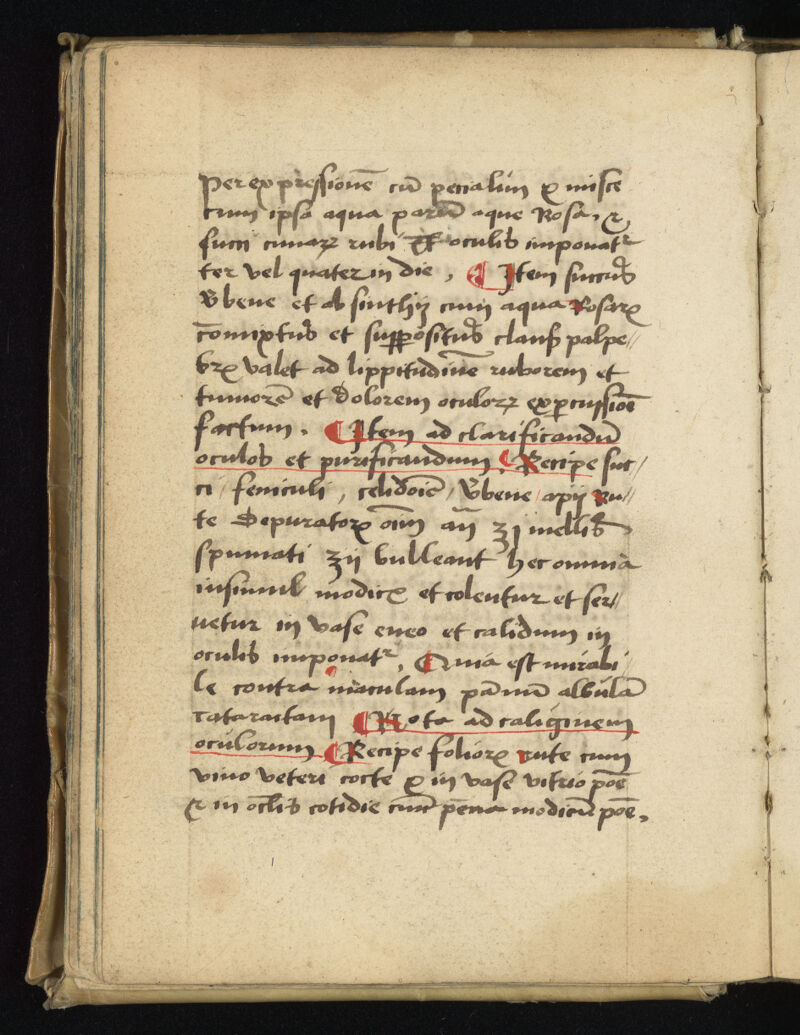 per expressionē cū pecialim et misce
cum ipsa aqua parū aque Rosar. et
succi rubi oculis imponatr
ter vel quater in die, ¶ Item succus
v̄bene et absinthij cum aqua Rosarꝝ
cōmixtus et suppositus clausis palpe//
brꝝ valet ad lippitudinē ruborem et
tumorē et dolorem oculorꝝ expcussiōe
factum. ¶ Item ad clarificandū
oculos et purificandum, ¶ Recipe suc//
ci / feniculi, celidoīe / v̄bene / apij Ru//
te depuratorꝝ oīm añ ʒj mellis
spumati ʒij bulleant hec omnia
insimul modice et colentur et ser//
uetur in vase eneo et calidum in
oculis imponatr, Quia est mirabi
le contra maculam pānū albulā
cataractam ¶ Nota ad caliginem
oculorum ¶ Recipe foliorꝝ rute cum
vino veteri cocte et in vase vitrio poē
et in oclis cotidie cum pēna modicū poē,